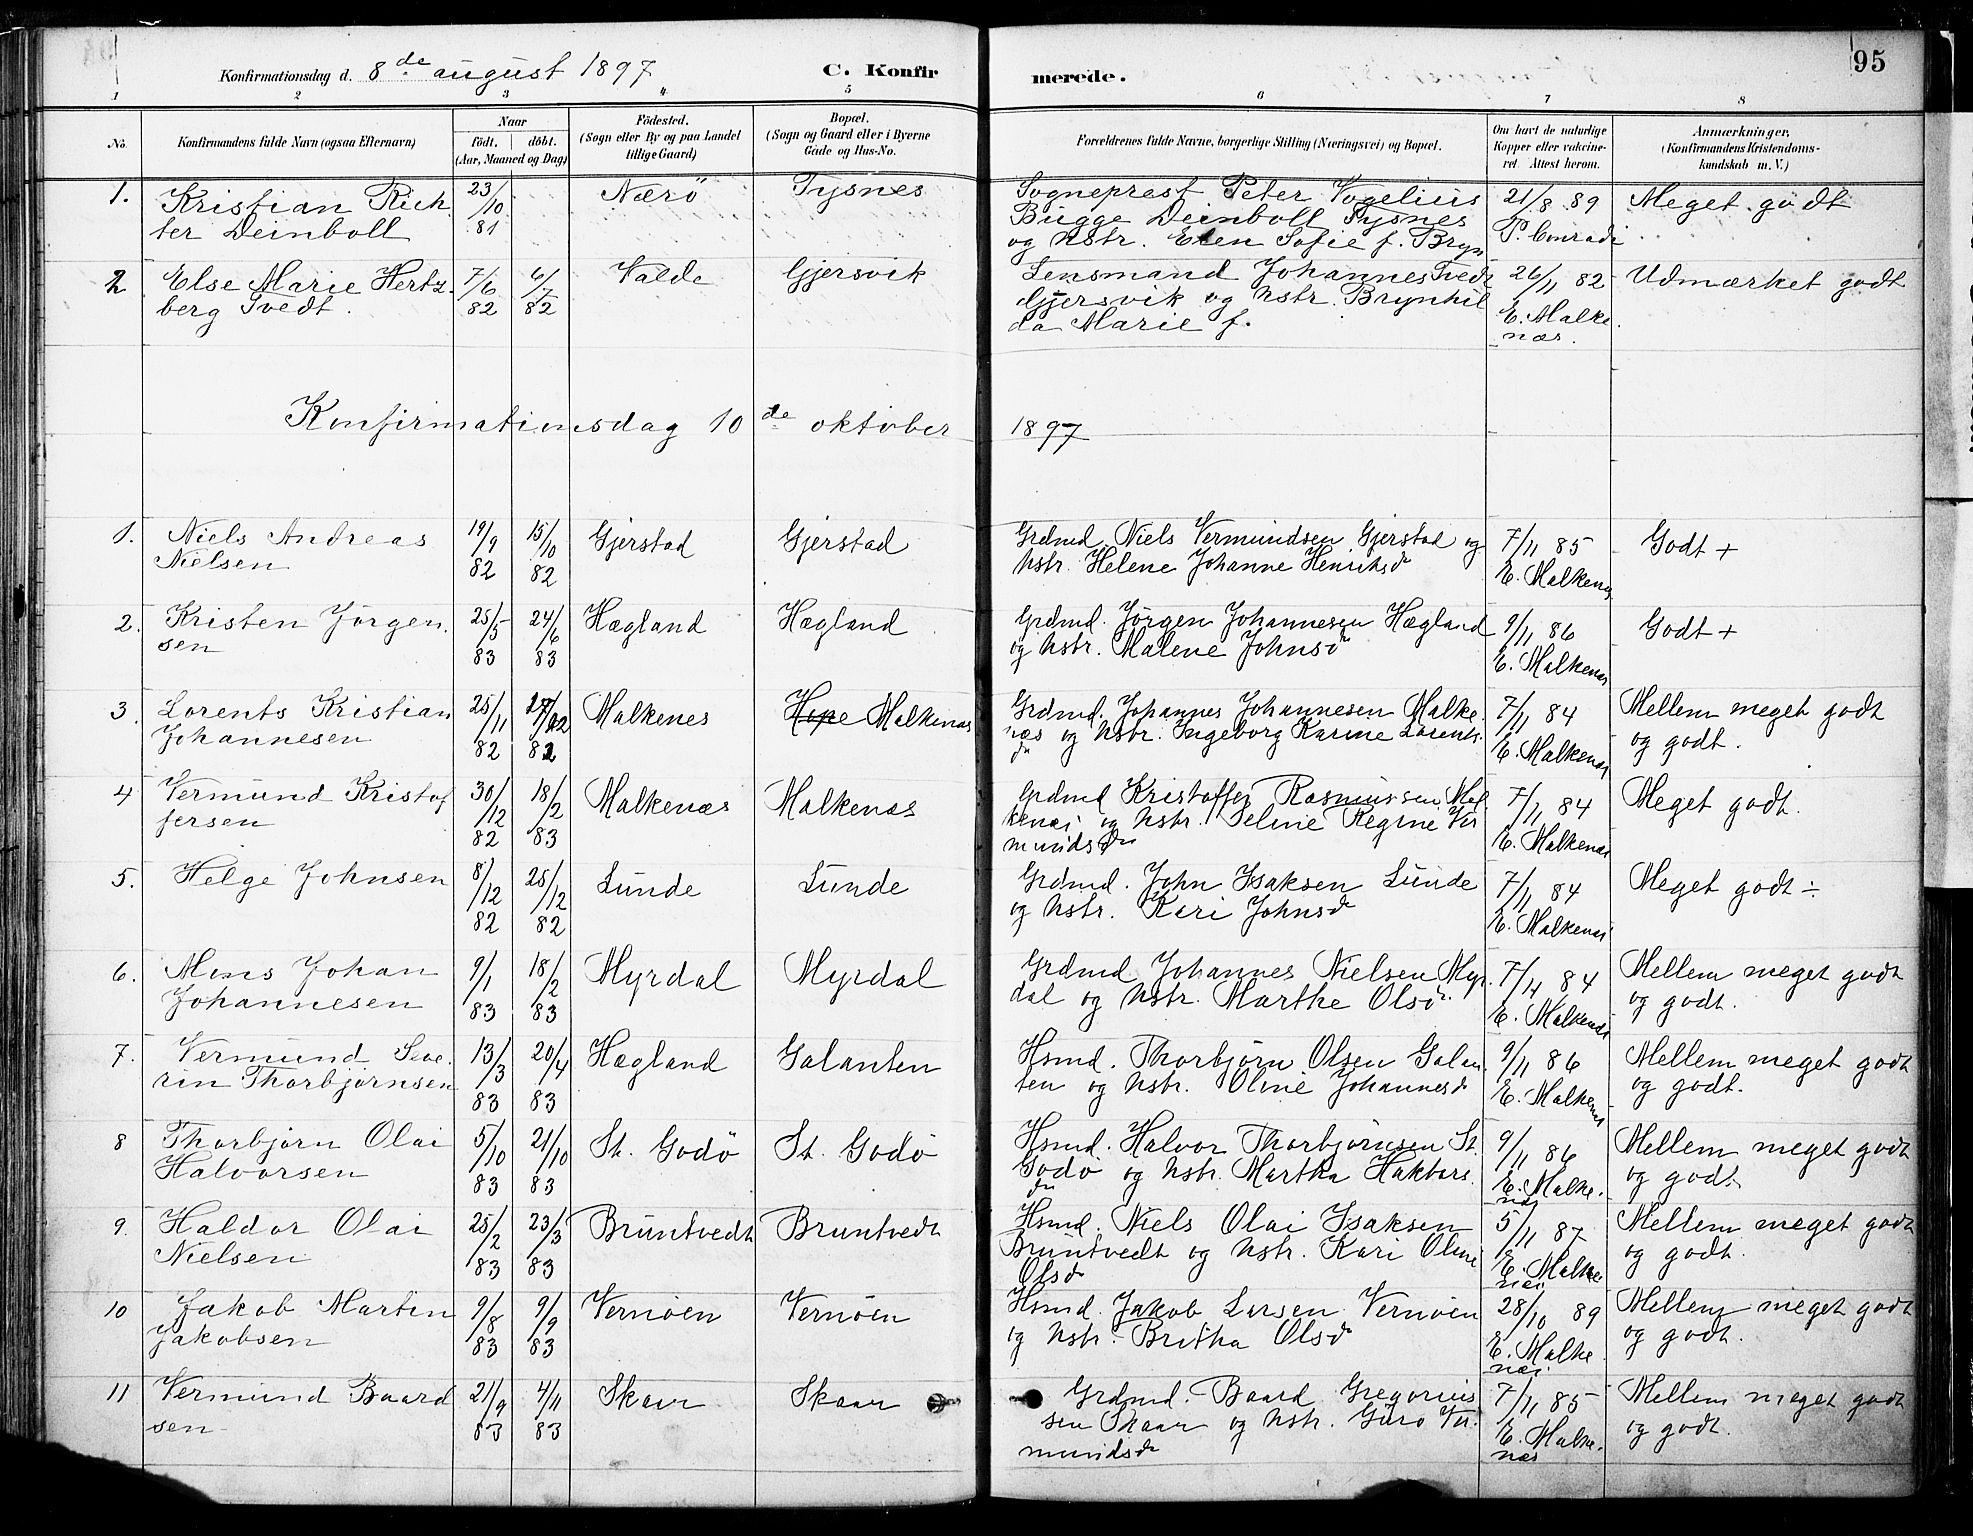 95
Konfirmationsdag d. 8de august 1897 C. Konfirmerede.
1 2 3 4 5 6 7 8
No. Konfirmandens fulde Navn (ogsaa Efternavn) Naar født. døbt. (Aar, Maaned og Dag) Fødested. (Sogn eller By og paa Landet tillige Gaard) Bopæl. (Sogn og Gaard eller i Byerne Gade og Hus-No. Forældrenes fulde Navne, borgerlige Stilling (Næringsvei) og Bopæl. Om havt de naturlige Kopper eller vaccineret. Attest herom. Anmærkninger, (Konfirmandens Kristendomskundskab m. V.)
1. Kristian Rich 23/10 81 Nærö Tysnes Sogneprest Peter Vogelius 21/8 89 Meget godt
ter Deinboll Bugge Deinboll Tysnes P. Conradi
og Hstr. Elen Sofie f. Bryn
2 Else Marie Hertz 7/6 82 6/7 82 Valde Gjersvik Lensmand Johannes Tvedt 26/11 82 Udmærket godt
berg Tvedt. Gjersvik og Hstr. Brynhil E. Malke
da Marie f. næs.
Konfirmationsdag 10de oktober 1897
1. Niels Andreas 19/9 82 15/10 82 Gjerstad Gjerstad Grdmd. Niels Vermundsen Gjerstad og 7/11 85 Godt +
Nielsen Hstr. Helene Johanne Henriksdr E. Malkenæs
2. Kristen Jørgen 25/5 83 24/6 83 Hægland Hægland Grdmd. Jørgen Johannesen Hægland 9/11 86 Godt +
sen og Hstr. Malene Johnsdr E. Malkenæs
3. Lorents Kristian 25/11 82 82 Malkenes Hope Malkenæs Grdmd. Johannes Johannesen Malke 7/11 84 Mellem meget godt
Johannesen næs og Hstr. Ingeborg Karine Lorents E. Malkenæs og godt.
dr
4 Vermund Kristof 30/12 82 18/2 83 Malkenæs Malkenæs Grdmd Kristoffer Rasmussen Mal 7/11 84 Meget godt.
fersen kenæs og Hstr. Seline Regine Ver E. Malkenæs
mundsdr
5. Helge Johnsen 8/12 82 25/12 82 Lunde Lunde Grdmd. John Isaksen Lunde 7/11 84 Meget godt ÷
og Hstr. Kari Johnsdr E. Malkenæs
6. Mons Johan 9/1 83 18/2 83 Myrdal Myrdal Grdmd Johannes Nielsen Myr 7/11 84 Mellem meget godt
Johannesen dal og Hstr. Marthe Olsdr. E. Malkenæs og godt.
7. Vermund Seve 13/3 83 20/4 83 Hægland Galanten Hsmd. Thorbjørn Olsen Galan 9/11 86 Mellem meget godt
rin Thorbjørnsen ten og Hstr. Oline Johannesdr E. Malkenæs og godt.
8 Thorbjørn Olai 5/10 83 21/10 83 St. Godö St. Godö Hsmd. Halvor Thorbjørnsen St. 9/11 86 Mellem meget godt
Halvorsen Godö og Hstr. Martha Hakbars E. Malke og godt
dr næs
9. Haldor Olai 25/2 83 23/3 83 Bruntvedt Bruntvedt Hsmd. Niels Olai Isaksen 5/11 87 Mellem meget godt
Nielsen Bruntvedt og Hstr. Kari Oline E. Malke og godt.
Olsdr næs
10 Jakob Martin 9/8 83 9/9 83 Vernøen Vernøen Hsmd. Jakob Larsen Vernøen 28/10 89 Mellem meget godt
Jakobsen og Hstr. Britha Olsdr E. Malke og godt.
næs
11 Vermund Baard 21/9 83 4/11 83 Skaar Skaar Grdmd. Baard Gregorius 7/11 85 Mellem meget godt
sen sen Skaar og Hstr. Guro Ver E. Malke og godt.
mundsdr næs